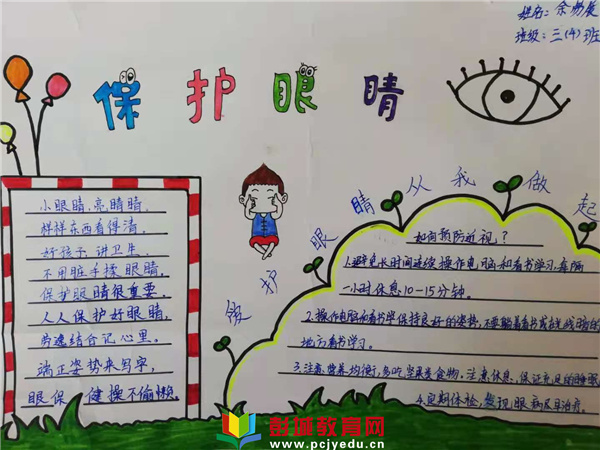 姓名:余
班级:三(4)班
保护眼睛
爱护眼睛从我做起
小眼睛,亮晶晶,
样样东西看得清。
好孩子,讲卫生,
不用脏手揉眼睛,
保护眼睛很重要。
人人保护好眼睛,
劳逸结合记心里。
端正姿势来写字,
眼保 健操不偷懒。
如何预防近视?
1.避免长时间连续操作电脑和看书学习,每隔
一小时休息10-15分钟。
2.操作电脑和看书学保持良好的姿势,不要躺着看书或在光线暗的
地方看书学习。
3.注意营养均衡,多吃 食物,注意休息,保证充足的睡眠
4.定期体检,发现眼病及早治疗。
彭城教育网
www.pcjyedu.cn